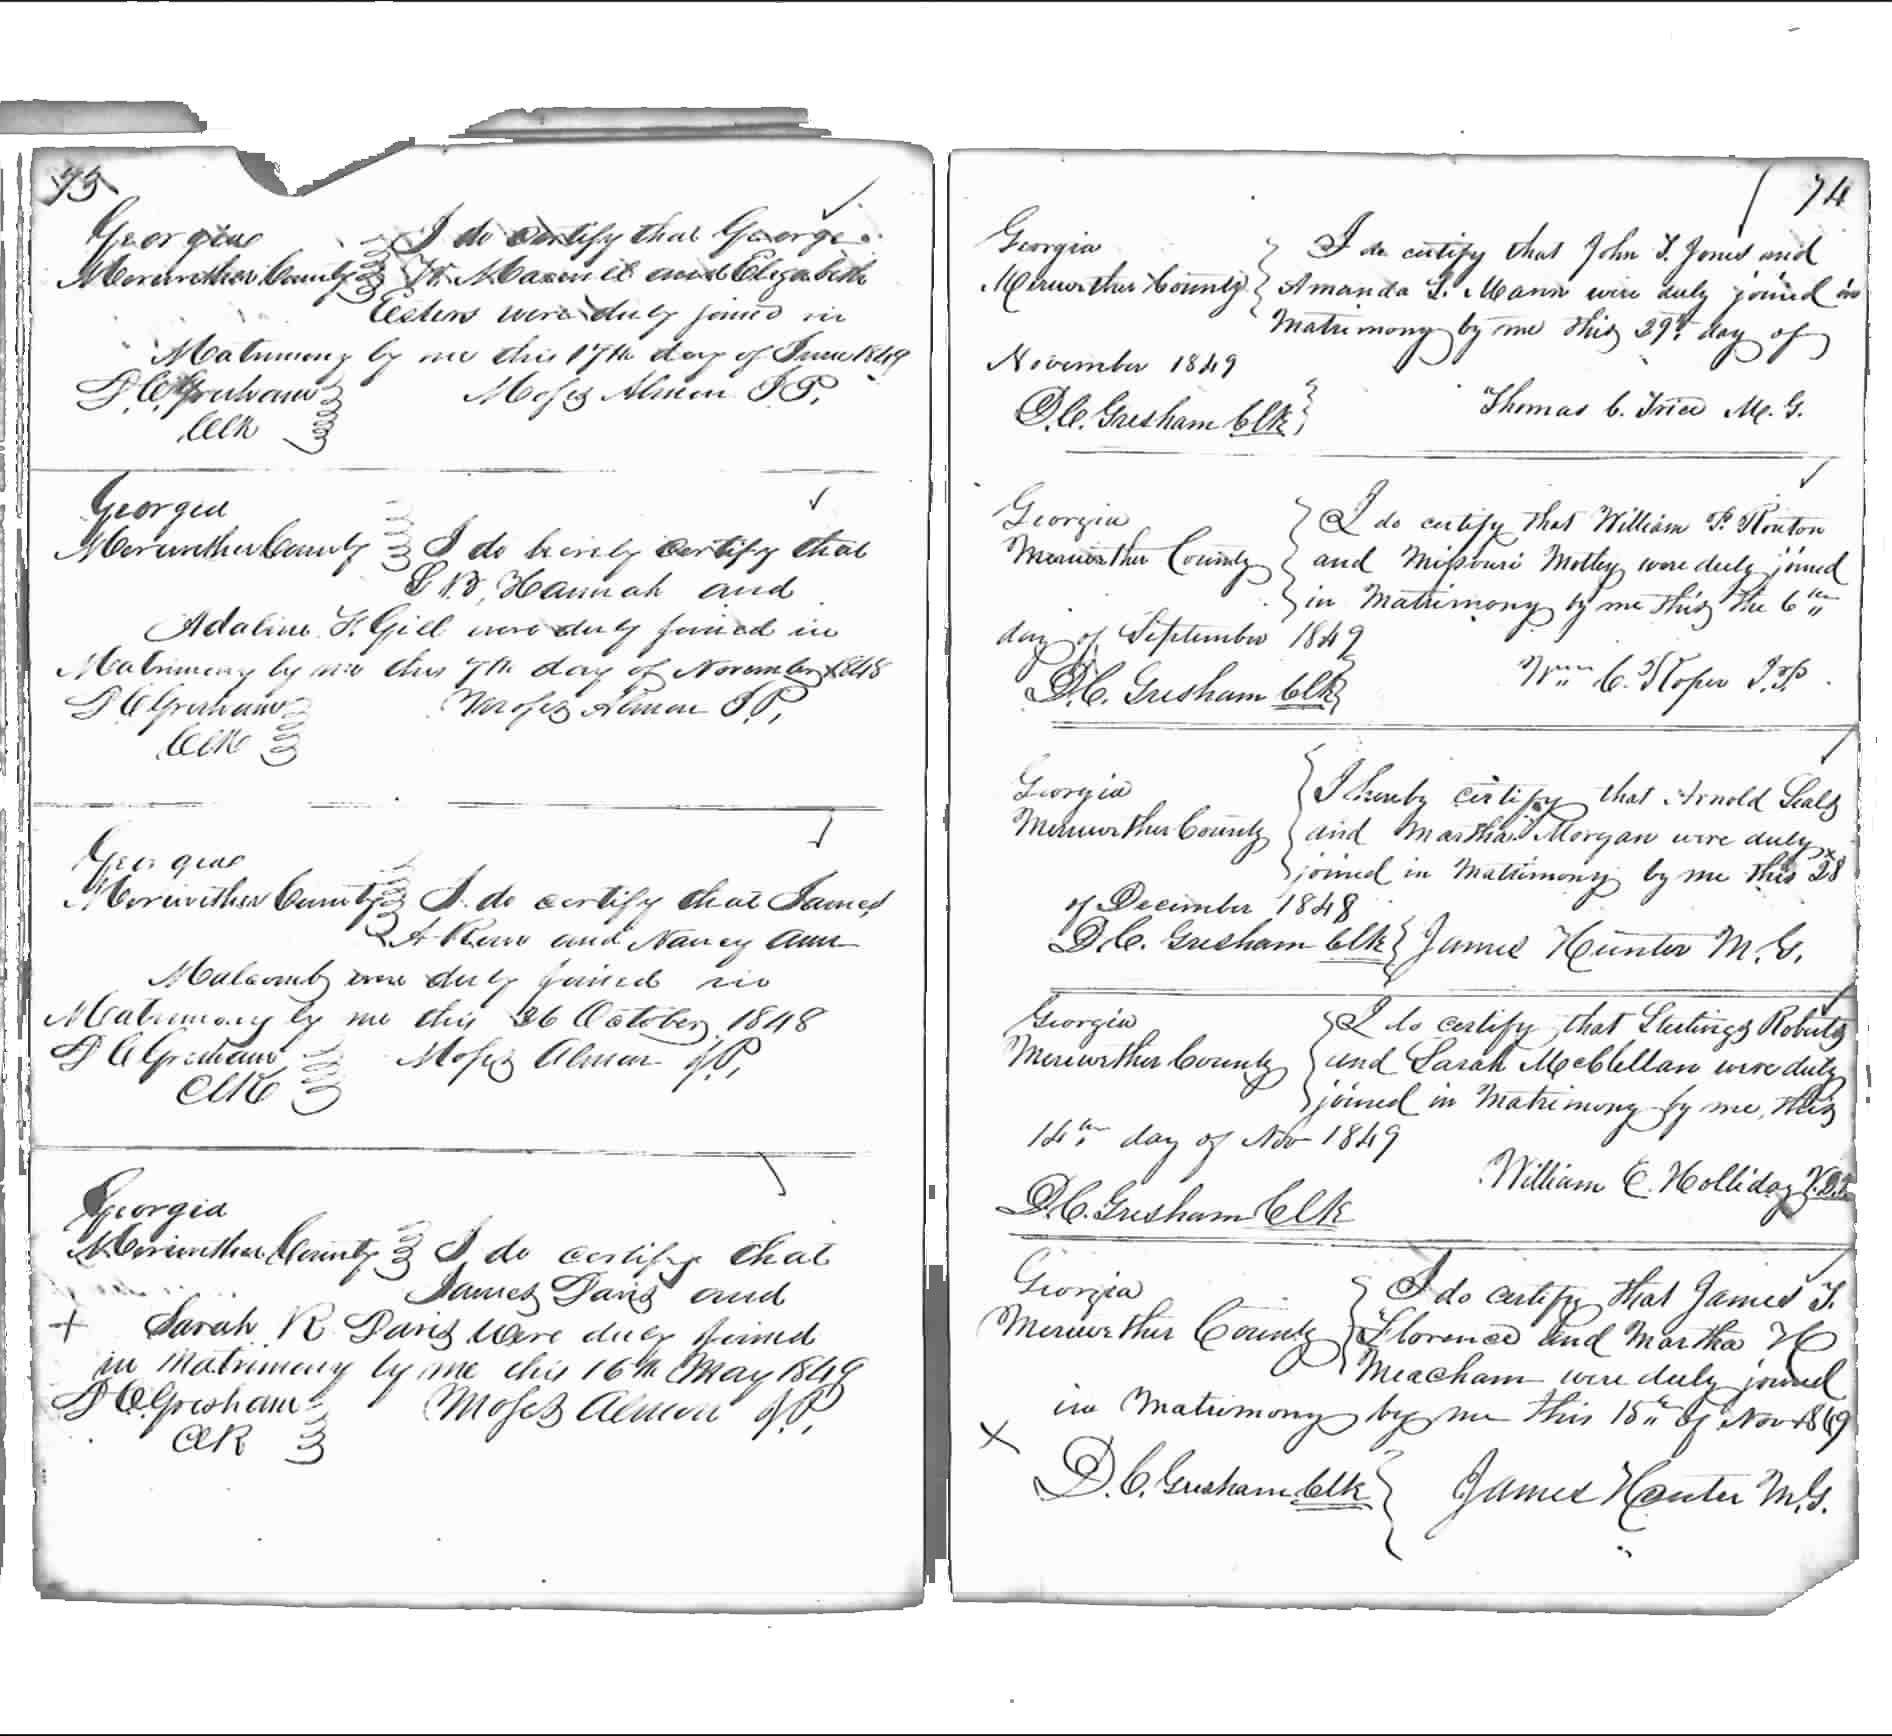 73
Georgia I do certify that George
Meriwether County W. Maxwell and Elizabeth
Esters were duly joined in
Matrimony by me this 17th day of June 1849
D. C. Gresham Moses Almon J P.
Clk
Georgia
Meriwether County I do hereby certify that
Hannah and
Adaline F. Gill were duly joined in
Matrimony by me this 7th day of November 1848
D C Gresham Moses Almon J P,
Clk
Georgia
Meriwether County I do certify that James
A and Nancy Ann
Malcomb were duly joined in
Matrimony by me this 26 October 1848
D C Gresham Moses Almon J.P,
Clk
Georgia
Meriwether County I do certify that
James Davis and
Sarah R Davis were duly joined
in Matrimony by me this 16th May 1849
D C. Gresham Moses Almon J.P,
Clk
74
Georgia I do certify that John T. Jones and
Meriwether County Amanda S. Mann were duly joined in
Matrimony by me this 29th day of
November 1849
D. C. Gresham Clk Thomas C. Trice M. G.
Georgia I do certify that William P. Routon
Meriwether County and Missouri Motley were duly joined
in Matrimony by me this the 6th
day of September 1849
D. C. Gresham Clk Wm C. Roper J.P
Georgia I hereby certify that Arnold Seals
Meriwether County and Martha Morgan were duly
joined in Matrimony by me this 28
of December 1848
D. C. Gresham Clk James Hunter M. G.
Georgia I do certify that Roberts
Meriwether County and Sarah McClellan were duly
joined in Matrimony by me, this
14th day of Nov 1849
William C. Holliday
D. C. Gresham Clk
Georgia I do certify that James T.
Meriwether County Florence and Martha H
Meacham were duly joined
in Matrimony by me this 15th of Nov 1849
X
D. C. Gresham Clk James Hunter M. G.